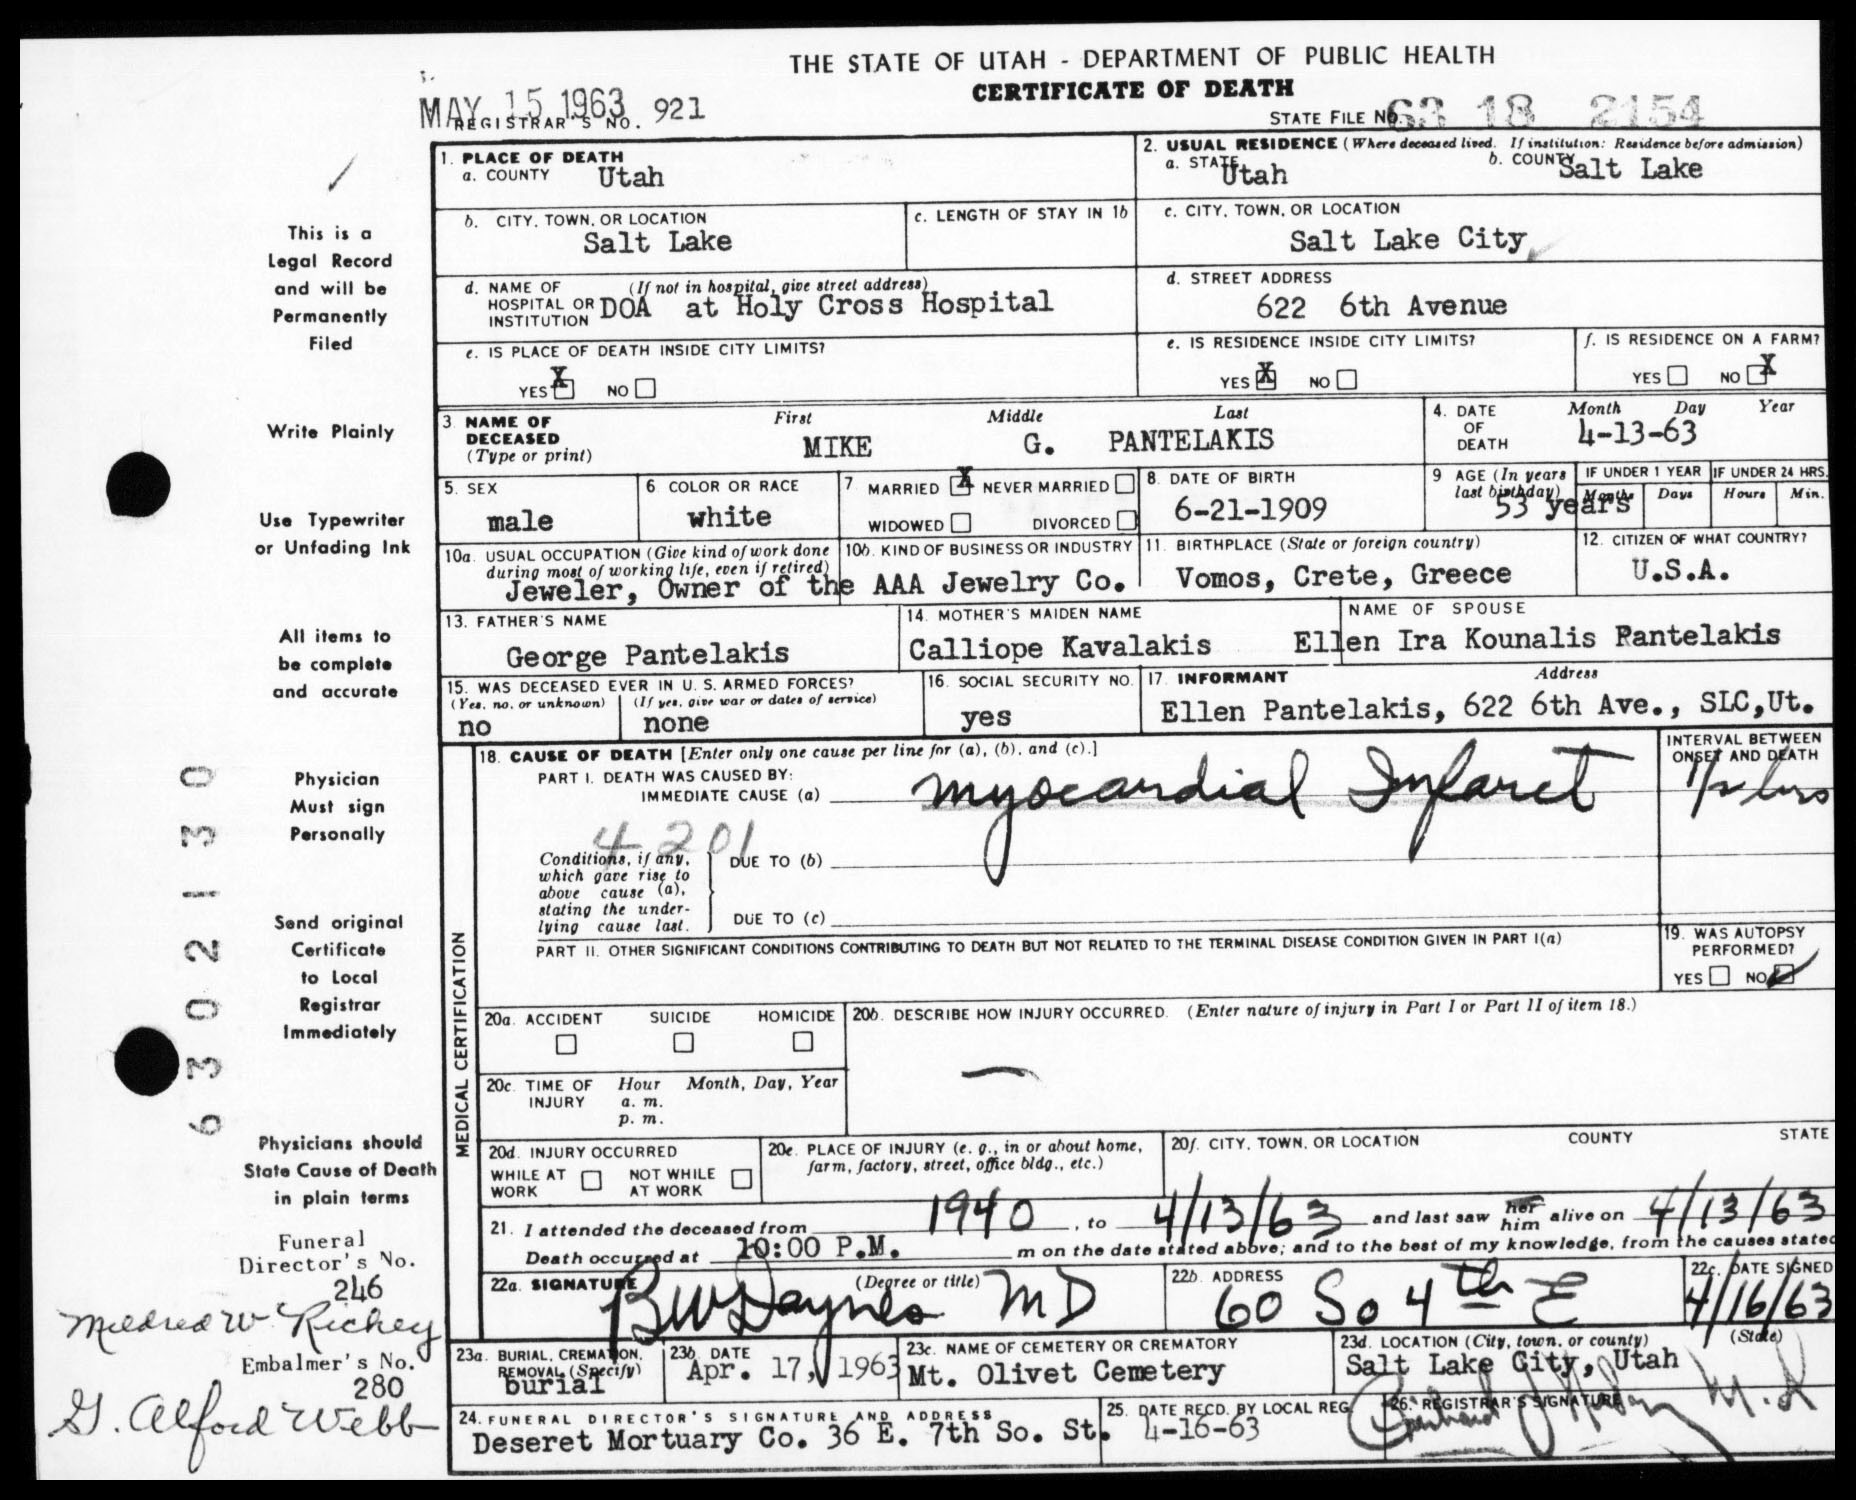 THE STATE OF UTAH - DEPARTMENT OF PUBLIC HEALTH
CERTIFICATE OF DEATH
MAY 15 1963
REGISTRAR'S NO. 921
STATE FILE NO. 63 18 2154
1. PLACE OF DEATH
a. COUNTY Utah
2. USUAL RESIDENCE (Where deceased lived. If institution: Residence before admission)
a. STATE Utah b. COUNTY Salt Lake
b. CITY, TOWN, OR LOCATION
Salt Lake
c. LENGTH OF STAY IN 1b
c. CITY, TOWN, OR LOCATION
Salt Lake City
d. NAME OF (If not in hospital, give street address)
HOSPITAL OR
INSTITUTION DOA at Holy Cross Hospital
d. STREET ADDRESS
622 6th Avenue
e. IS PLACE OF DEATH INSIDE CITY LIMITS?
YES X NO
e. IS RESIDENCE INSIDE CITY LIMITS?
YES X NO
f. IS RESIDENCE ON A FARM?
YES NO X
3 NAME OF DECEASED (Type or print)
First Middle Last
MIKE G. PANTELAKIS
4. DATE OF DEATH
Month Day Year
4-13-63
5. SEX
male
6 COLOR OR RACE
white
7 MARRIED X NEVER MARRIED
WIDOWED DIVORCED
8. DATE OF BIRTH
6-21-1909
9 AGE (In years last birthday)
53 years
IF UNDER 1 YEAR
Months Days
IF UNDER 24 HRS.
Hours Min.
10a. USUAL OCCUPATION (Give kind of work done
during most of working life, even if retired)
10b. KIND OF BUSINESS OR INDUSTRY
Jeweler, Owner of the AAA Jewelry Co.
11. BIRTHPLACE (State or foreign country)
Vomos, Crete, Greece
12. CITIZEN OF WHAT COUNTRY?
U.S.A.
13. FATHER'S NAME
George Pantelakis
14. MOTHER'S MAIDEN NAME
Calliope Kavalakis
NAME OF SPOUSE
Ellen Ira Kounalis Pantelakis
15. WAS DECEASED EVER IN U. S. ARMED FORCES?
(Yes, no, or unknown) (If yes, give war or dates of service)
no none
16. SOCIAL SECURITY NO.
yes
17. INFORMANT Address
Ellen Pantelakis, 622 6th Ave., SLC,Ut.
18. CAUSE OF DEATH [Enter only one cause per line for (a), (b), and (c).]
PART I. DEATH WAS CAUSED BY:
IMMEDIATE CAUSE (a) Myocardial Infarct
INTERVAL BETWEEN
ONSET AND DEATH
1/2 hrs
4201
Conditions, if any,
which gave rise to
above cause (a),
stating the under-
lying cause last.
DUE TO (b)
DUE TO (c)
PART II. OTHER SIGNIFICANT CONDITIONS CONTRIBUTING TO DEATH BUT NOT RELATED TO THE TERMINAL DISEASE CONDITION GIVEN IN PART I(a)
19. WAS AUTOPSY
PERFORMED?
YES NO
MEDICAL CERTIFICATION
20a. ACCIDENT SUICIDE HOMICIDE
20b. DESCRIBE HOW INJURY OCCURRED. (Enter nature of injury in Part I or Part II of item 18.)
20c. TIME OF INJURY
Hour Month, Day, Year
a. m.
p. m.
20d. INJURY OCCURRED
WHILE AT WORK NOT WHILE AT WORK
20e. PLACE OF INJURY (e. g., in or about home,
farm, factory, street, office bldg., etc.)
20f. CITY, TOWN, OR LOCATION COUNTY STATE
21. I attended the deceased from 1940, to 4/13/63 and last saw her him alive on 4/13/63
Death occurred at 10:00 P.M. m on the date stated above; and to the best of my knowledge, from the causes stated
22a. SIGNATURE (Degree or title)
BW Daynes MD
22b. ADDRESS
60 So 4th E
22c. DATE SIGNED
4/16/63
23a. BURIAL, CREMATION,
REMOVAL (Specify)
burial
23b. DATE
Apr. 17, 1963
23c. NAME OF CEMETERY OR CREMATORY
Mt. Olivet Cemetery
23d. LOCATION (City, town, or county) (State)
Salt Lake City, Utah
24. FUNERAL DIRECTOR'S SIGNATURE AND ADDRESS
Deseret Mortuary Co. 36 E. 7th So. St.
25. DATE RECD. BY LOCAL REG.
4-16-63
26. REGISTRAR'S SIGNATURE
This is a
Legal Record
and will be
Permanently
Filed
Write Plainly
Use Typewriter
or Unfading Ink
All items to
be complete
and accurate
Physician
Must sign
Personally
Send original
Certificate
to Local
Registrar
Immediately
Physicians should
State Cause of Death
in plain terms
Funeral
Director's No.
246
Mildred W. Richey
Embalmer's No.
280
G. Alford Webb
6302130